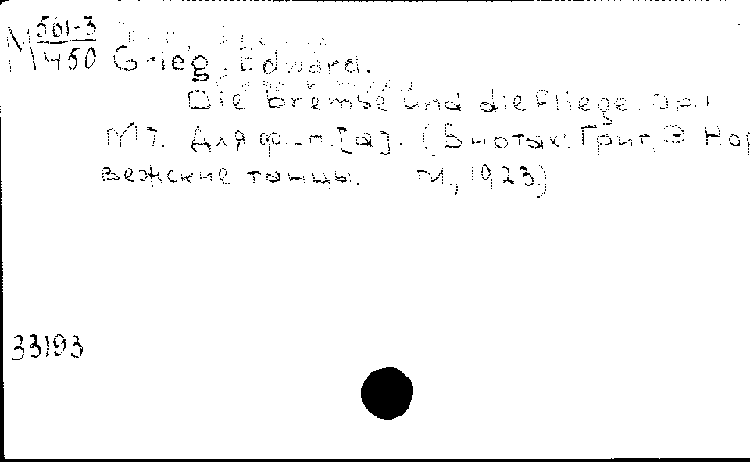 M 501-3
450 Grieg, Edward.
Die Bremse und die Fliege. op. 1
M 7. Для ф.-п. [а]. (В нотах: Григ, Э Нор
вежские танцы. М., 1923)
33193